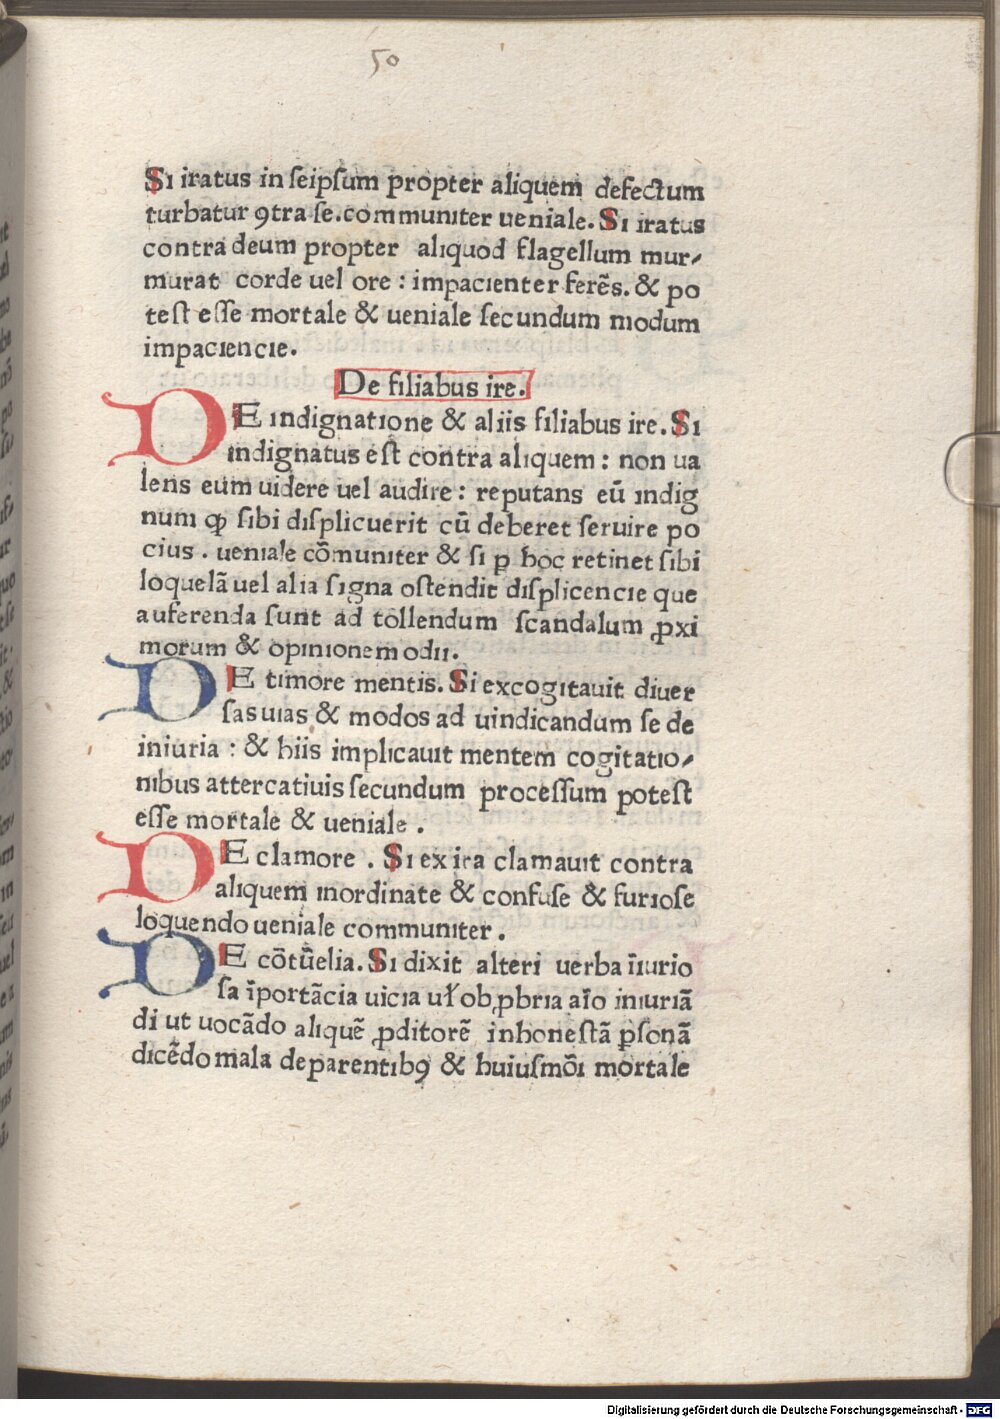 50
Si iratus in seipſum propter aliquem defectum
turbatur ꝯtra ſe.communiter ueniale. Si iratus
contra deum propter aliquod flagellum mur⸗
murat corde uel ore : impacienter ferēs. & po
teſt eſſe mortale & ueniale ſecundum modum
impaciencie.
De filiabus ire.
DE indignatione & aliis filiabus ire. Si
indignatus eſt contra aliquem : non ua
lens eum uidere uel audire : reputans eū indig
num ꝙ ſibi diſplicuerit cū deberet ſeruire po
cius . ueniale cōmuniter & ſi ꝑ hoc retinet ſibi
loquelā uel alia ſigna oſtendit diſplicencie que
auferenda ſunt ad tollendum ſcandalum ꝓxi
morum & opinionem odii.
DE timore mentis. Si excogitauit diuer
ſas uias & modos ad uindicandum ſe de
iniuria : & hiis implicauit mentem cogitatio⸗
nibus attercatiuis ſecundum proceſſum poteſt
eſſe mortale & ueniale .
DE clamore . Si ex ira clamauit contra
aliquem inordinate & confuſe & furioſe
loquendo ueniale communiter .
DE cōtūelia. Si dixit alteri uerba īiurio
ſa īportācia uicia uł obꝓbria aīo iniuriā
di ut uocādo aliquē ꝓditorē inhoneſtā ꝑſonā
dicēdo mala de parentibꝯ & huiuſmōi mortale
Digitalisierung gefördert durch die Deutsche Forschungsgemeinschaft - DFG